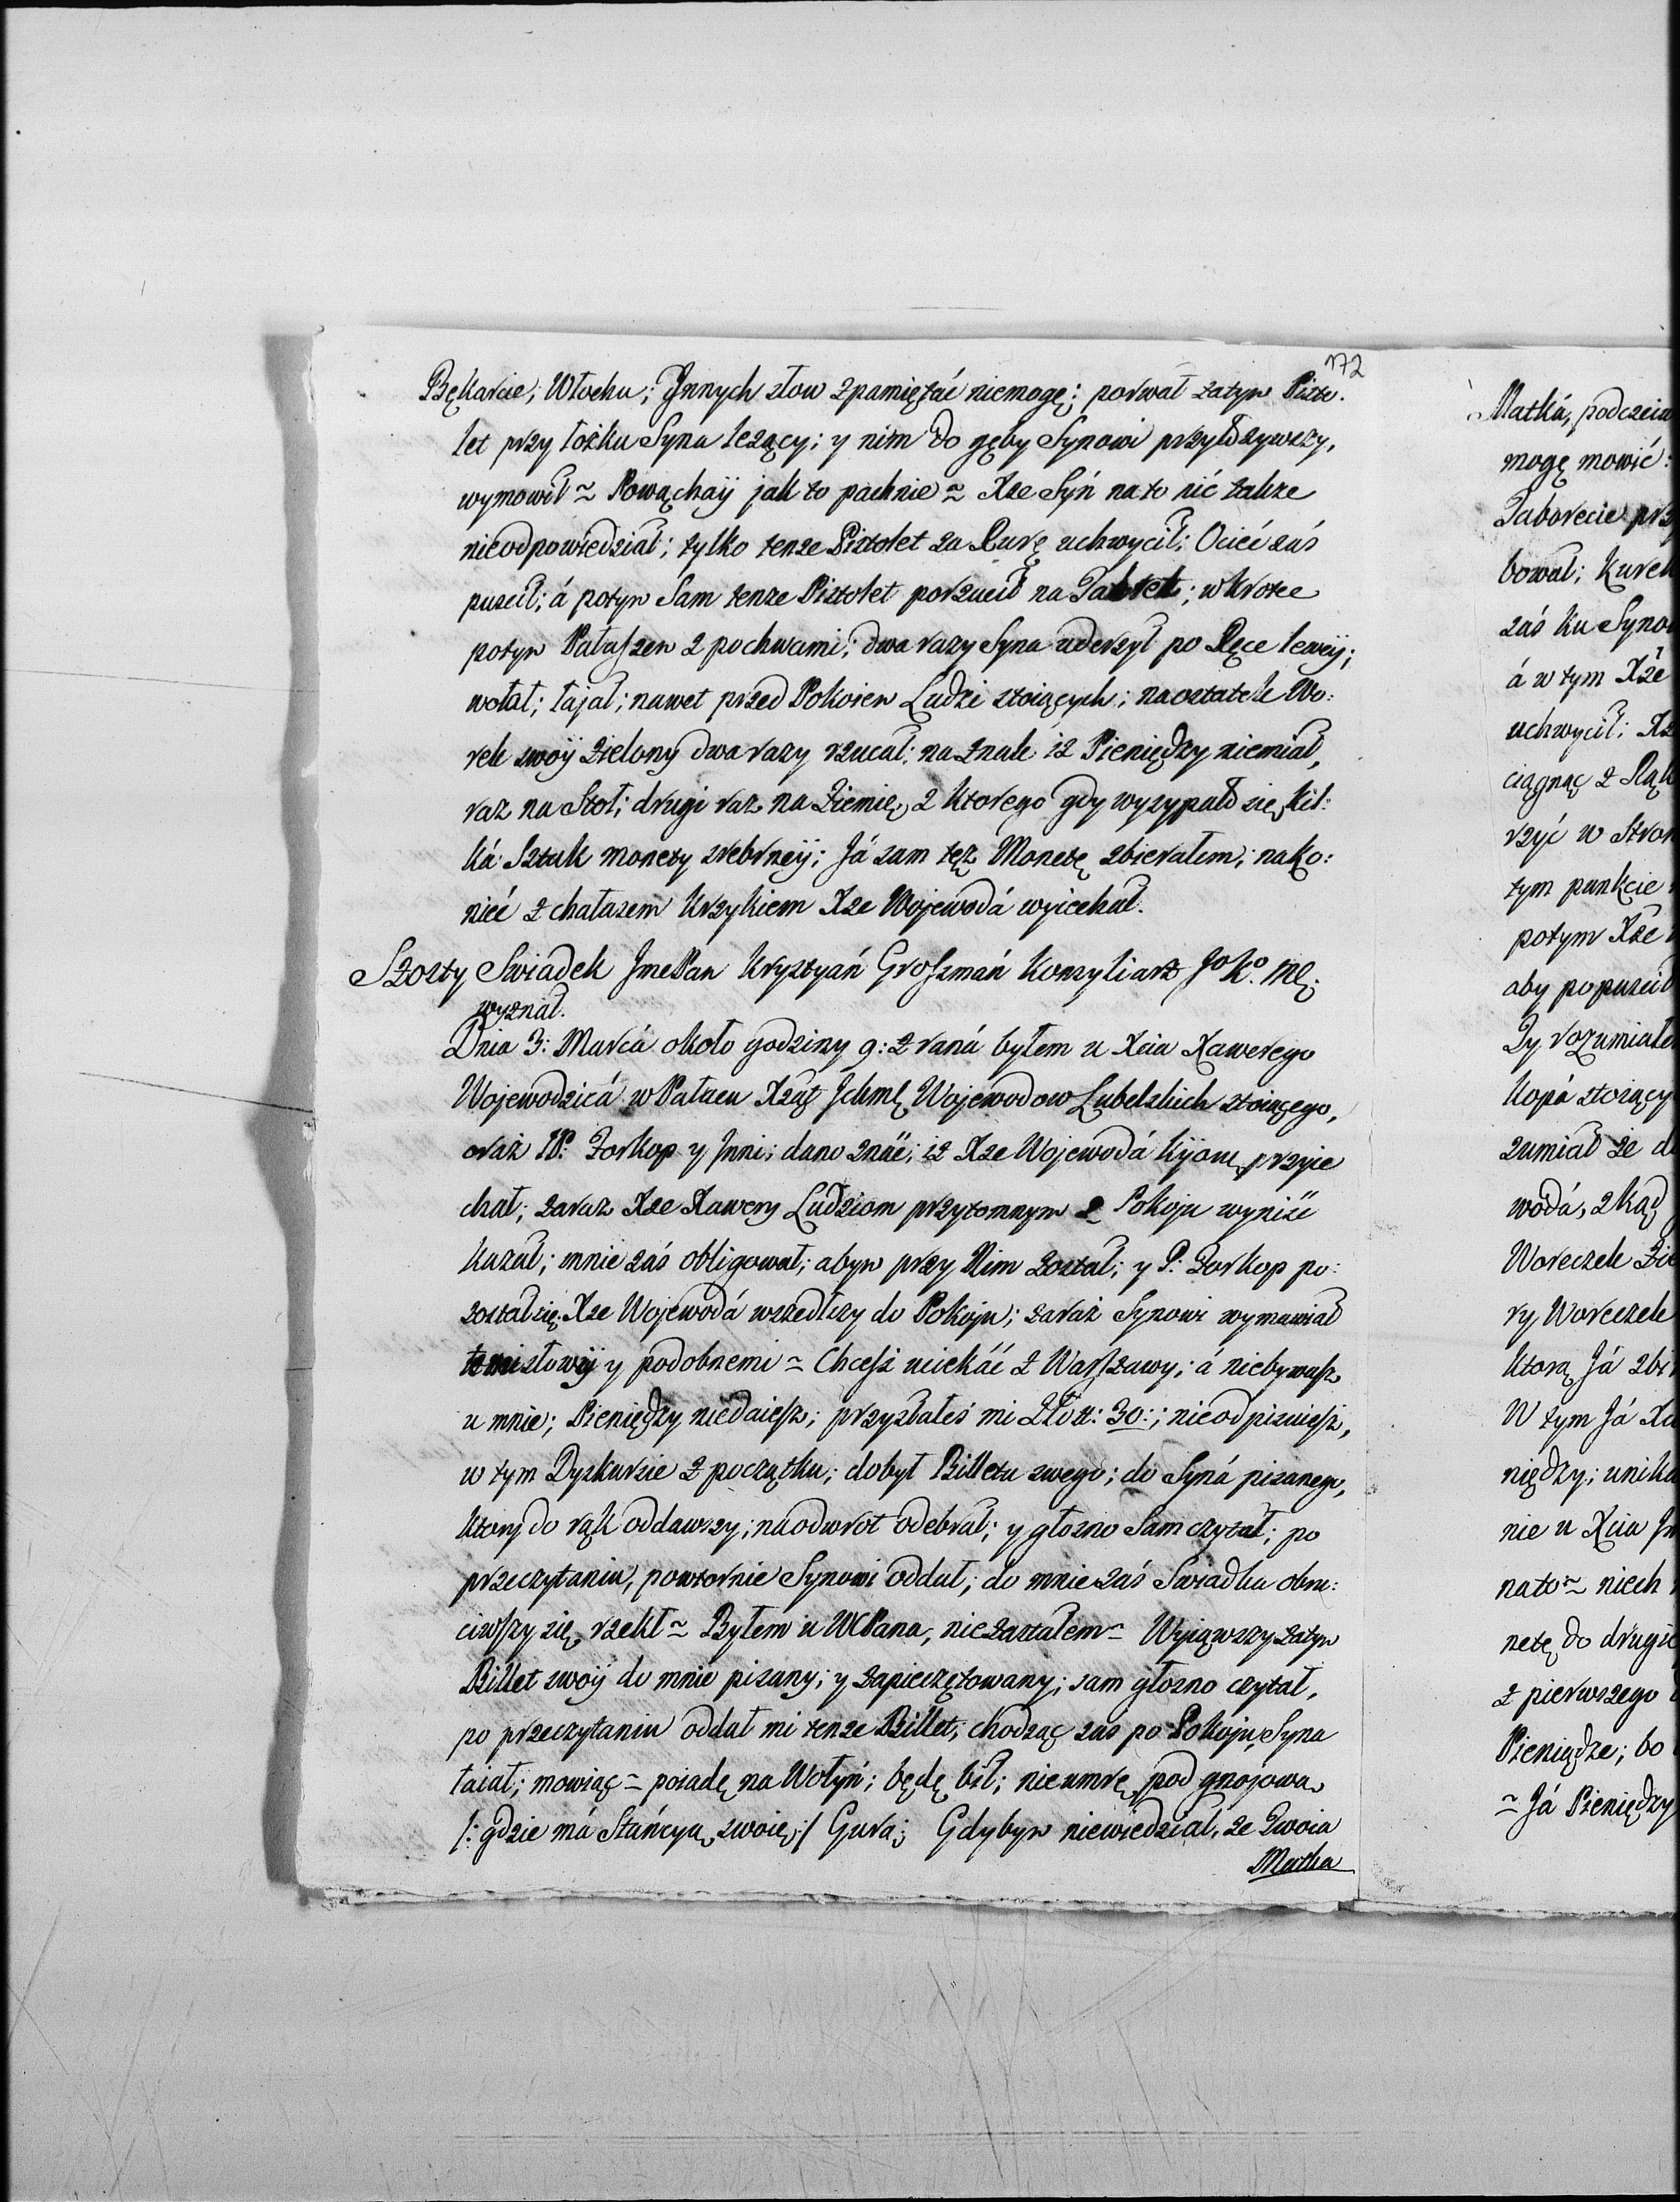 172
Bękarcie; Włochu; Jnnych słow zpamiętać niemogę; porwał zatym Pisto:
let przy łożku Syna leżący; y nim do gęby Synowi przyłożywszy,
wymowił ~ Powąchaÿ jak to pachnie ~ Xże Syń na to nić także
nieodpowiedział; tylko tenże Pistolet za Rurę uchwycił; Ociec zaś
puscił; á potym Sam tenże Pistolet porzucił na; wkrotce
potym Pałaszem z pochwami; dwa razy Syna uderzył po Ręce lewey;
wołał; łajał; nawet przed Pokoiem Ludzi stoiących; naostatek Wo:
rek swoÿ Zielony dwa razy rzucał; na znak iż Pieniędzy niemiał,
raz na Stoł; drugi raz na Ziemię, z ktorego gdy wysypało się kil:
ká Sztuk monety srebrneÿ; Já sam też Monetę zbierałem; nako:
nieć z chałasem krzykiem Xże Wojewodá wyiechał.
Szosty Swiadek JmcPan Krystyań Groszmań Konsyliarz Jo Ko. Mć;
wyznał.
Dnia 3: Marcá około godziny 9: z raná byłem u Xcia Xawerego
Wojewodzicá w Pałacu Xżąt Jchmć Wojewodow Lubelskich stoiącego,
oraż P: Zorkop y Jnni; dano znáć; iż Xże Wojewodá Kijow: przyie
chał; zaraz Xże Xawery Ludziom przytomnym z Pokoju wyniść
kazał; mnie zaś obligował; abym przy Nim został; y P: Zorkop po:
został się; Xże Wojewodá wszedłszy do Pokoju; zaráz Synowi wymawiał
temi słowÿ y podobnemi ~ Chcesz uciekáć z Warszawy; á niebywasz
u mnie; Pieniędzy niedaiesz; przysłałeś mi Złot: 30:; nieodpisuiesz,
w tym Dyskursie z początku; dobył Billetu swego; do Syná pisanego,
ktory do rąk oddawszy; naodwrot odebrał; y głosno Sam czytał; po
przeczytaniu, powtornie Synowi oddał; do mnie zaś Swiadka obru:
ciwszy się, rzekł ~ Byłem u WCPana, niezastałem ~ Wyiąwszy zatym
Billet swoÿ do mnie pisany; y zapieczętowany; sam głosno czytał,
po przeczytaniu oddał mi tenże Billet; chodząc zaś po Pokoju, Syna
łaiał; mowiąc ~ poiadę na Wołyń; będę bił; nieumrę pod gnojową
/: gdzie má Stáncyą swoię :/ Gurą; Gdybym niewiedział, że Twoia
Matka
Matká, podczein
mogę mowić:
Taborecie prz
bował; kurek
zaś ku Syno
á w tym Xże
uchwycił; Xż
ciągnąć z Rąk
rzyć w Stron
tym punkcie
potym Xże
aby popuscił
Ty rozumiałe
kopá stoiący
zumiał że d
wodá, z kąd
Woreczek Zie
ry Woreczek
ktorą Já zbi
W tym Já Xi
niędzy; unik
nie u Xcia Jm
nato ~ niech
netę do drugie
z pierwszego
Pieniądze; bo
~ Já Pieniędzy